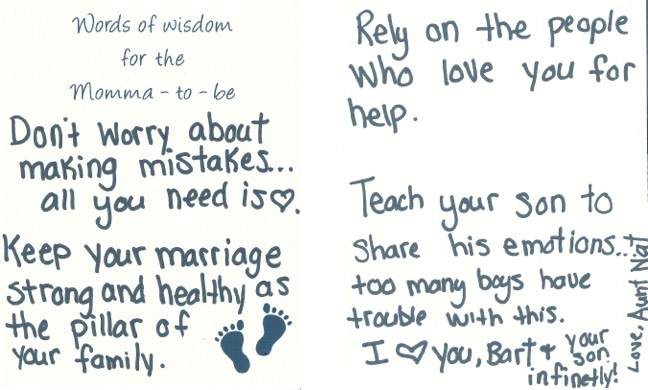 Words of wisdom
for the
Momma - to - be
Don't worry about
making mistakes...
all you need is ♡.
Keep your marriage
strong and healthy as
the pillar of
your family.
Rely on the people
who love you for
help.
Teach your son to
share his emotions...
too many boys have
trouble with this.
I ♡ you, Bart + your
son
infinetly!
Love, Aunt Nat